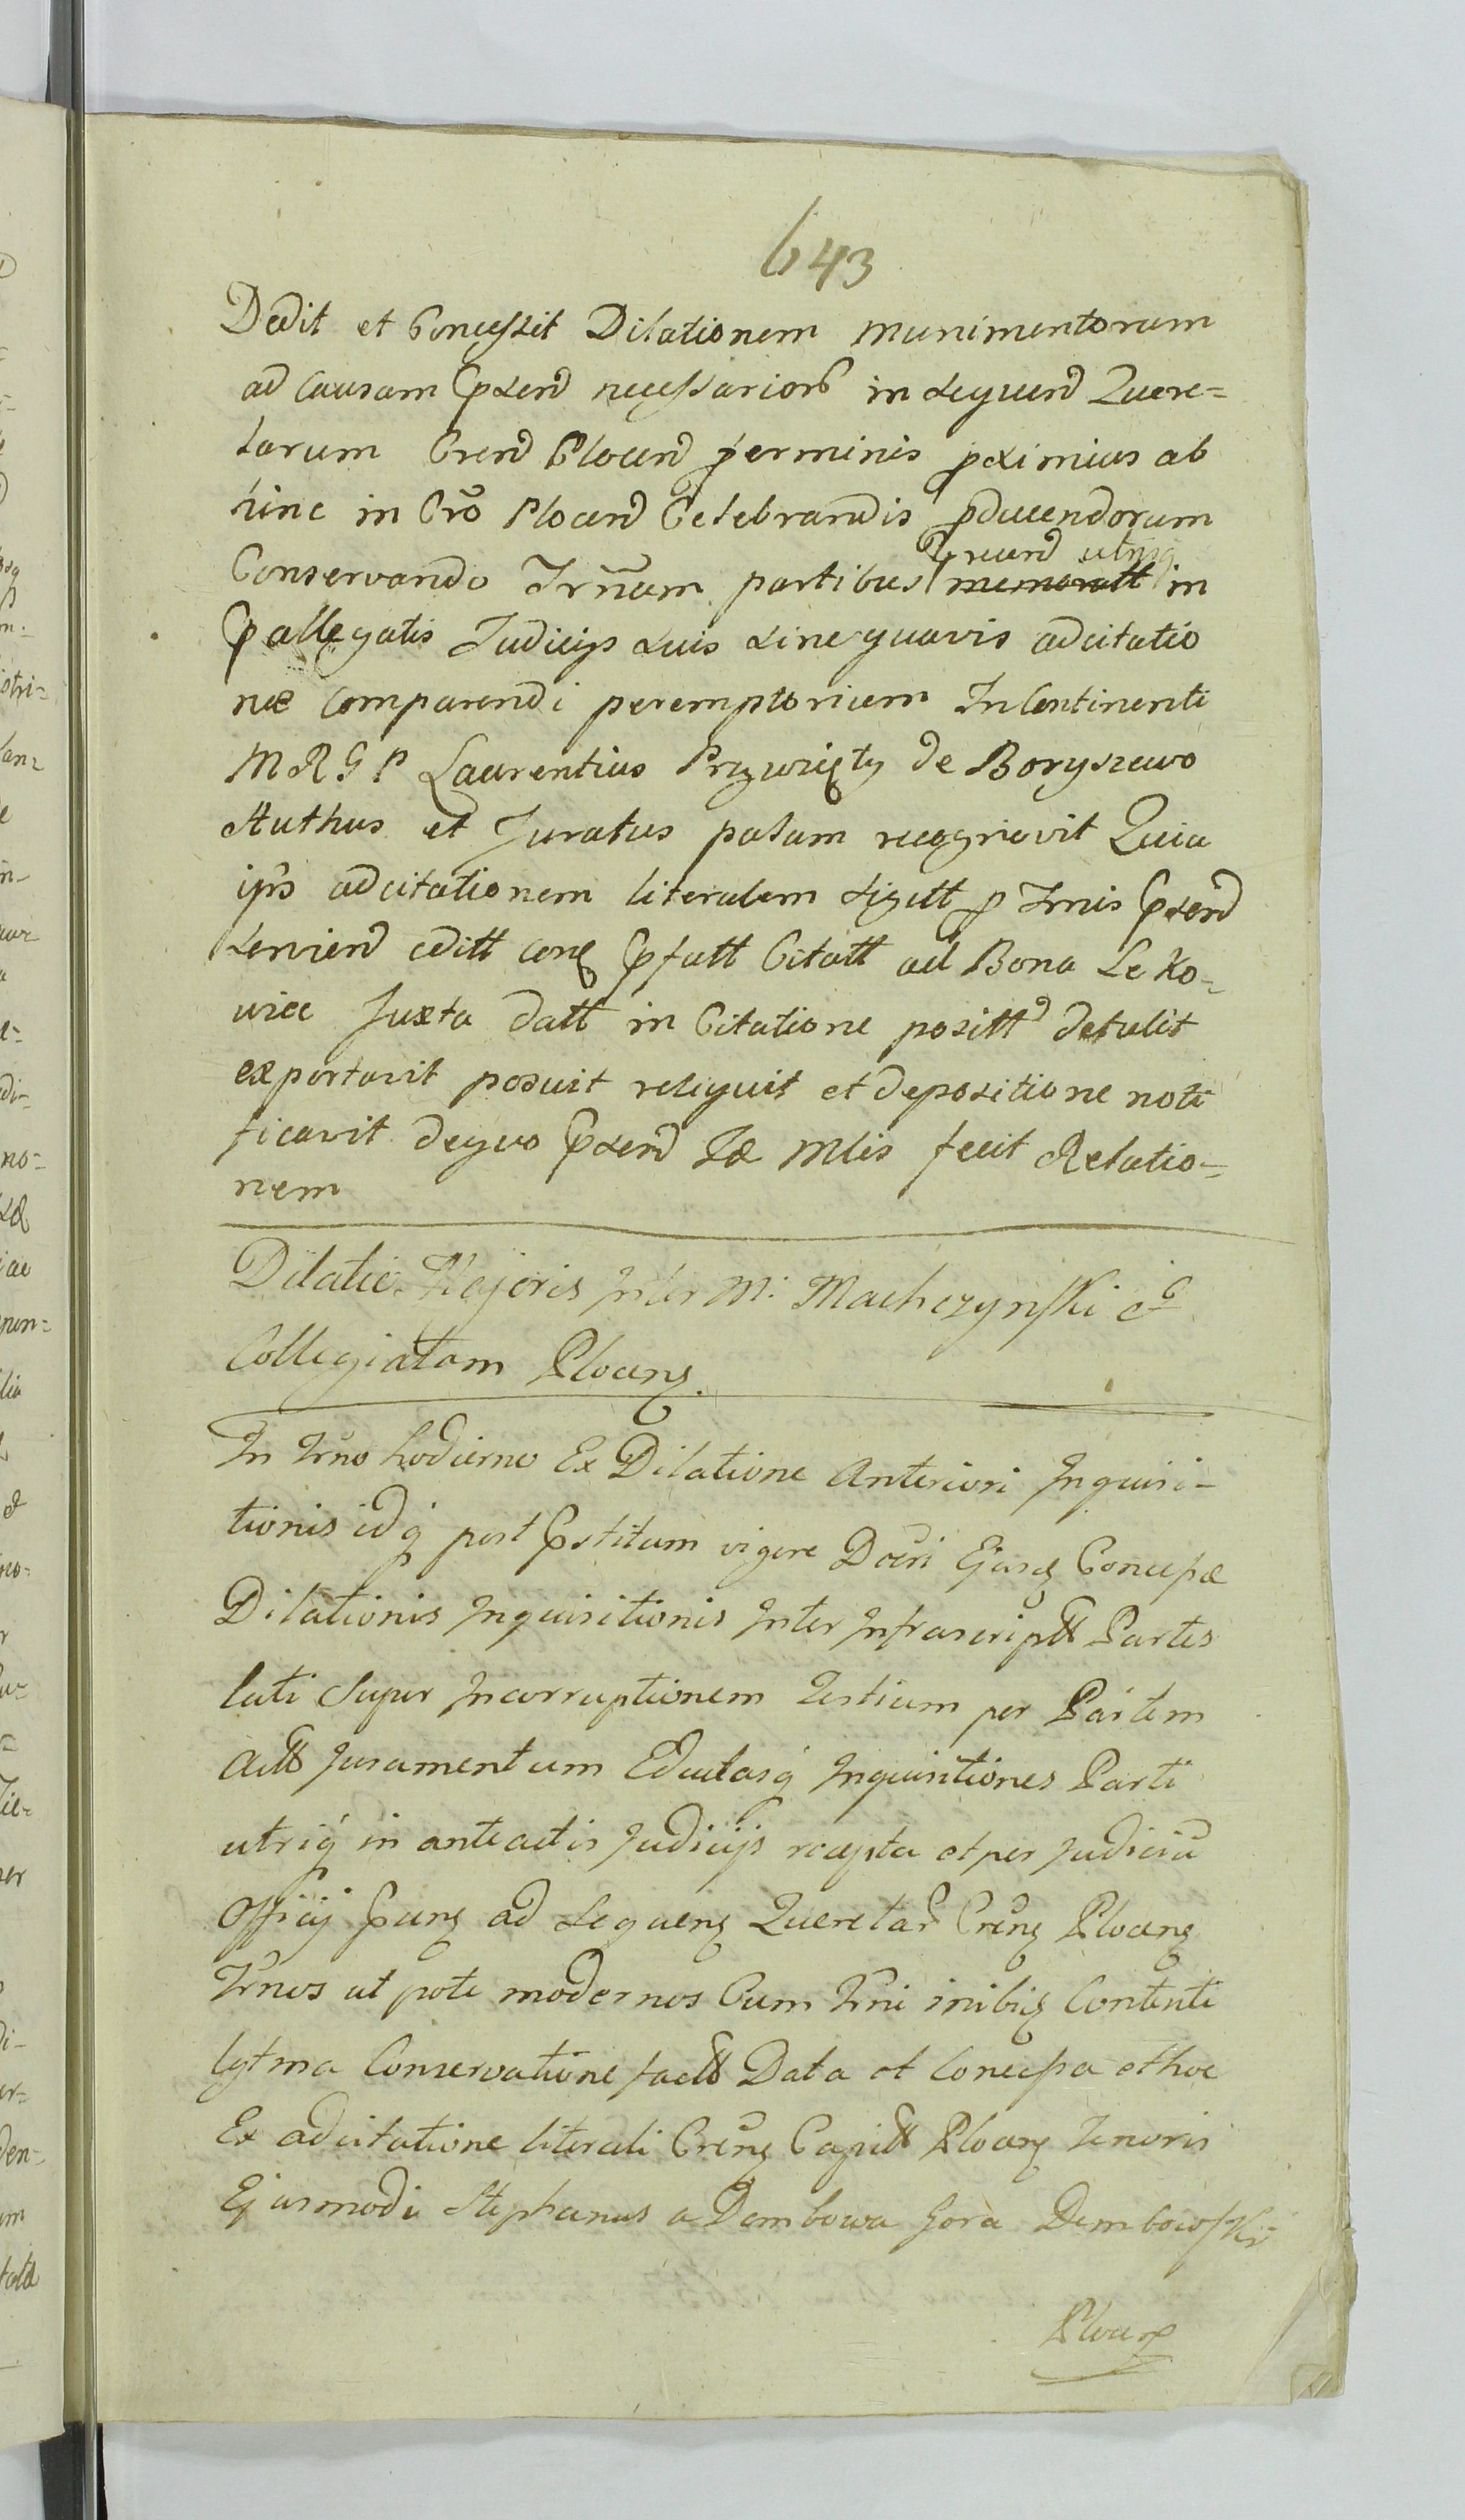 643
Dedit et Concessit Dilationem munimentorum
ad causam pnsend necessarior in sequend Quere-
larum Crend Plocend Terminis pximius ab
hinc in Cro Plocend Celebrandis pducendorum
Conservando Trnum partibus memoratt in
pallegatis Judicijs suis sine quavis adcitatio
ne comparendi peremptorium Incontinenti
MRGP Laurentius Przywizęty de Boryszewo
Authus et Juratus palam recognovit Quia
ips adcitationem literalem sigill p Trmis pnsend
Serviend editt conq pfatt Citatt ad Bona Leko-
wice Juxta datt in Citatione positt detulit
exportavit posuit reliquit et depositione noti
ficavit dequo pnsend Mlis fecit Relatio-
nem
Dilatio Majoris Inter M. Machczynski et
Collegiatam Plocens
In Trno hodierno Ex Dilatione Anteriori Inquisi-
tionis idq post pstitum vigore Decri Ejusd Concessæ
Dilationis Inquisitionis Inter Infrascriptt Partes
lati Super Incorruptionem Testium per Partem
Actt Juramentum Eductasq Inquisitiones Parti
utriq in anteactis Judicijs recepta et per Judiciu
Officij pnns ad Sequens Querelar Crens Plocens
Trnos ut pote modernos Cum Trni inibiq Contenti
lgtma Conservatione factt Data et Concessa et hoc
Ex adcitatione literali Crens Capitt Plocens Tenoris
Ejusmodi Stephanus a Dembowa Gora Dembowski
Plocens